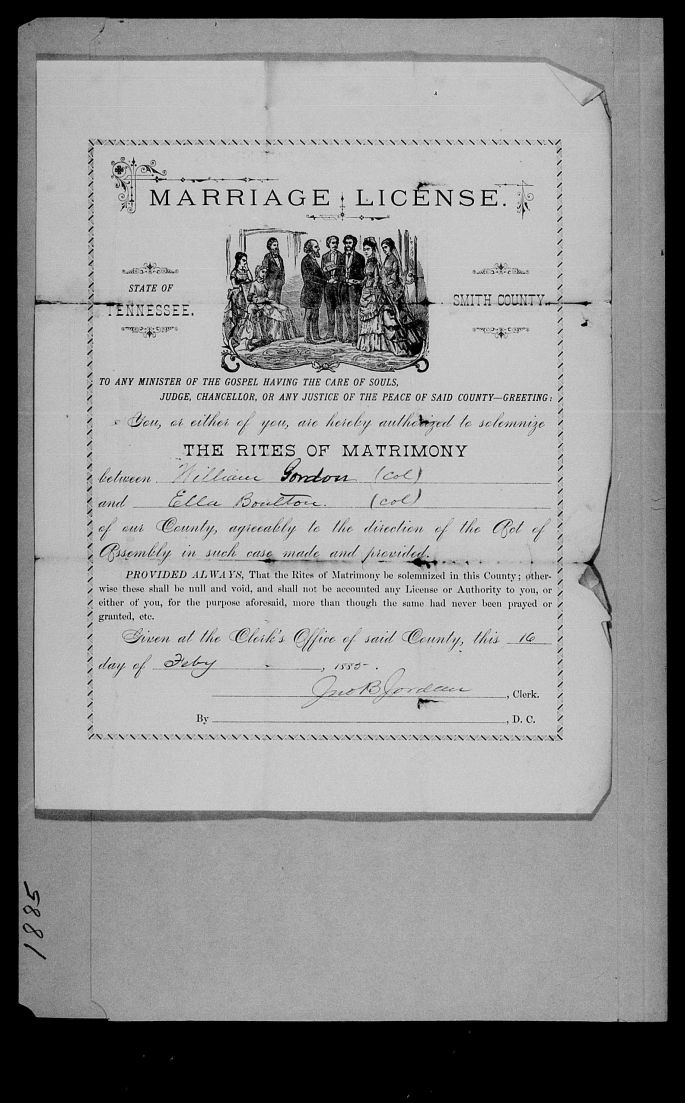 MARRIAGE LICENSE.
STATE OF
TENNESSEE.
SMITH COUNTY.
TO ANY MINISTER OF THE GOSPEL HAVING THE CARE OF SOULS,
JUDGE, CHANCELLOR, OR ANY JUSTICE OF THE PEACE OF SAID COUNTY—GREETING:
You, or either of you, are hereby authorized to solemnize
THE RITES OF MATRIMONY
between William Gordon (col)
and Ella Boulton. (col)
of our County, agreeably to the direction of the Act of
Assembly in such case made and provided.
PROVIDED ALWAYS, That the Rites of Matrimony be solemnized in this County; other-
wise these shall be null and void, and shall not be accounted any License or Authority to you, or
either of you, for the purpose aforesaid, more than though the same had never been prayed or
granted, etc.
Given at the Clerk's Office of said County, this 16
day of Feby, 1885.
Jno B Jordan, Clerk.
By , D. C.
1885